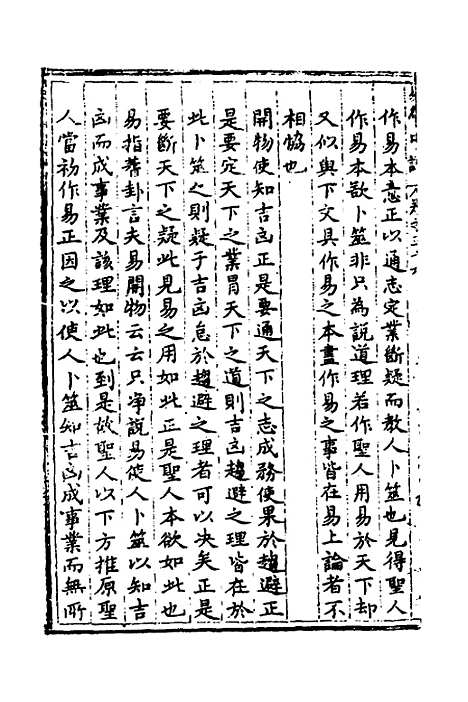 作易本意正以通志定業斷疑而教人卜筮也見得聖人
作易本欲卜筮非只為說道理若作聖人用易於天下却
又似與下文具作易之本盡作易之事皆在易上論者不
相恊也
開物使知吉凶正是要通天下之志成務使果於趨避正
是要定天下之業冐天下之道則吉凶趨避之理皆在於
此卜筮之則疑于吉凶怠於趨避之理者可以决矣正是
要斷天下之疑此見易之用如此正是聖人本欲如此也
易指蓍卦言夫易開物云云只渾說易使人卜筮以知吉
凶而成事業及該理如此也到是故聖人以下方推原聖
人當初作易正因之以使人卜筮知吉凶成事業而無所